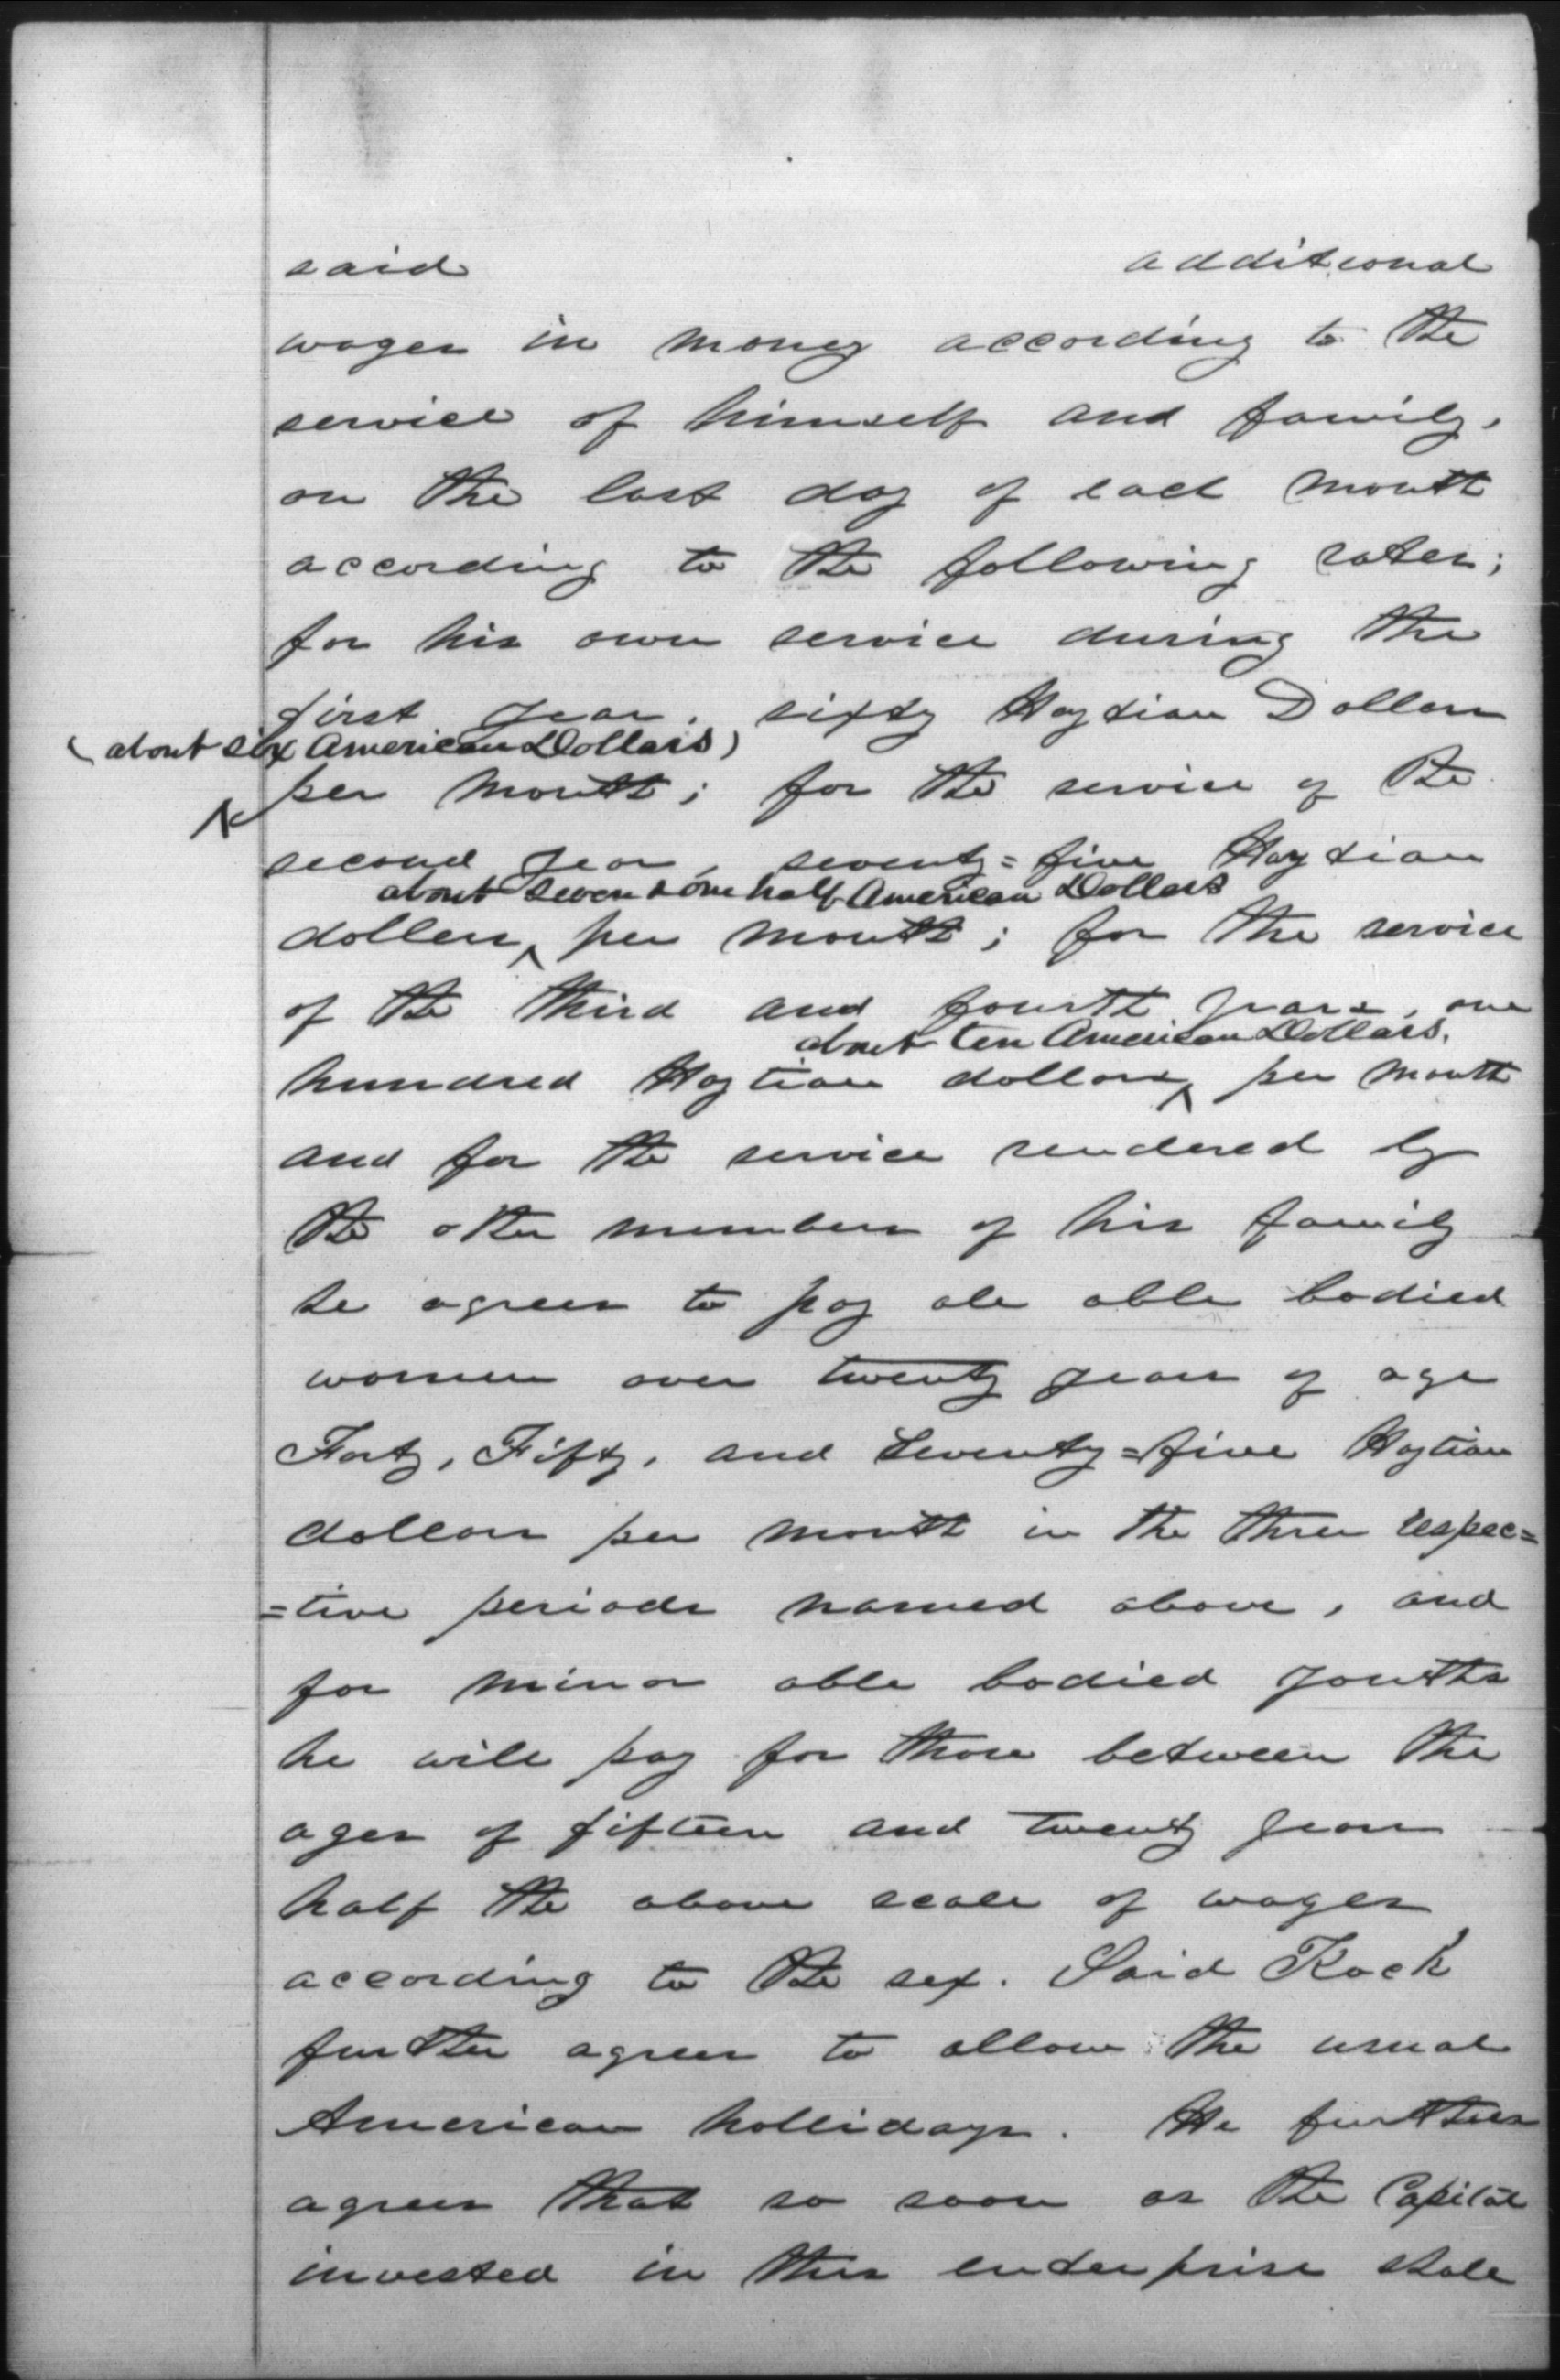 said additional
wages in money according to the
service of himself and family,
on the last day of each month
according to the following rates;
for his own service during the
first year, sixty Haytian Dollars
(about six American Dollars)
per month; for the service of the
second year, seventy=five Haytian
about seven & one half American Dollars
dollars, per month; for the service
of the third and fourth years, one
about ten American Dollars.
hundred Haytian dollars, per month
and for the service rendered by
the other members of his family
he agrees to pay all able bodied
women over twenty years of age
Forty, Fifty, and Seventy=five Haytian
dollars per month in the three respec=
=tive periods named above, and
for minor able bodied youths
he will pay for those between the
ages of fifteen and twenty years
half the above scale of wages
according to the sex. Said Kock
further agrees to allow the usual
American hollidays. He further
agrees that so soon as the Capital
invested in this enterprise shall